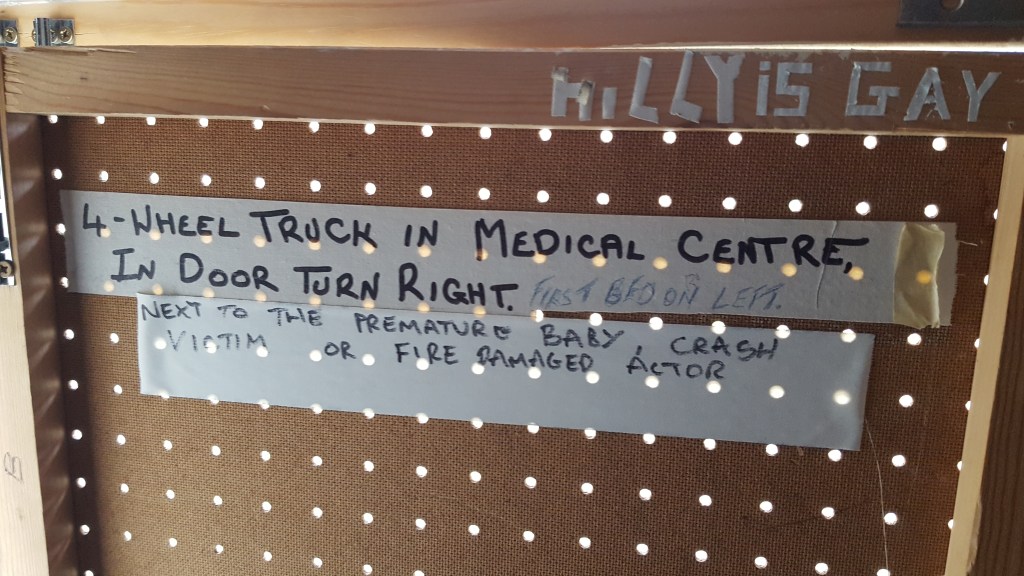 HiLLY iS GAY
4-WHEEL TRUCK IN MEDICAL CENTRE,
IN DOOR TURN RIGHT. FIRST BED ON LEFT.
NEXT TO THE PREMATURE BABY, CRASH
VICTIM OR FIRE DAMAGED ACTOR